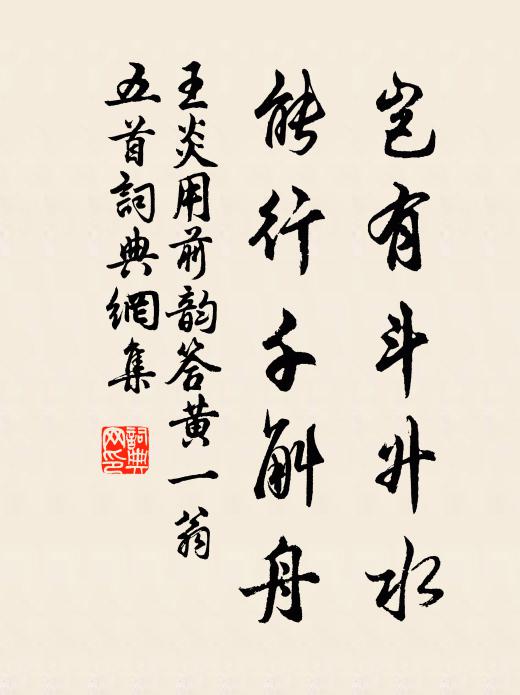 豈有斗升水
能行千斛舟
王炎用前韵答黄一翁
五首詞典網集
詞典
网印